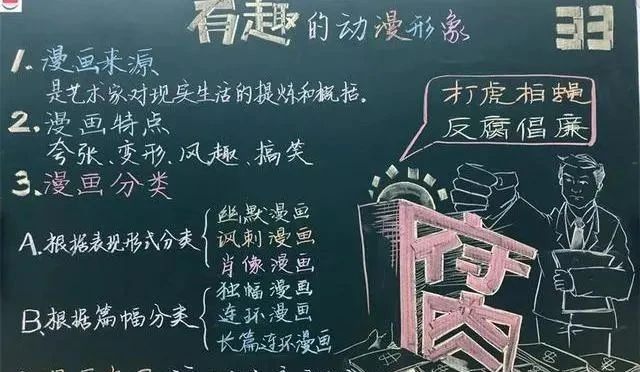 有趣的动漫形象
1. 漫画来源
是艺术家对现实生活的提炼和概括。
2. 漫画特点
夸张、变形、风趣、搞笑
3. 漫画分类
A. 根据表现形式分类
幽默漫画
讽刺漫画
肖像漫画
B. 根据篇幅分类
独幅漫画
连环漫画
长篇连环漫画
打虎拍蝇
反腐倡廉
腐
$
$